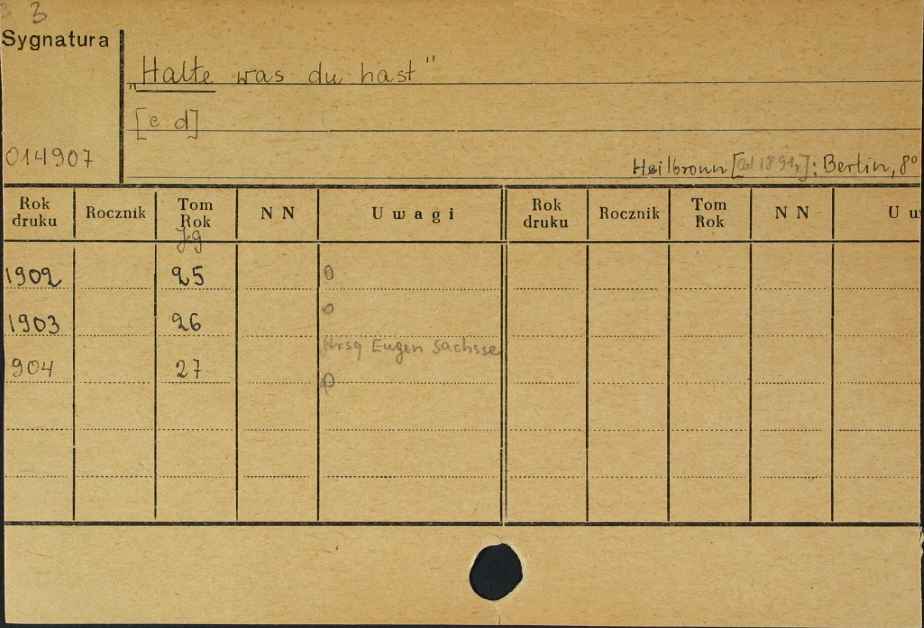 3
Sygnatura
„Halte was du hast"
[c d]
014907
Heilbronn [od 1894]: Berlin, 8°
Rok druku Rocznik Tom Rok N N Uwagi Rok druku Rocznik Tom Rok N N U
Jg
1902 25 0
1903 26 0
Hrsg Eugen Sachsse
904 27